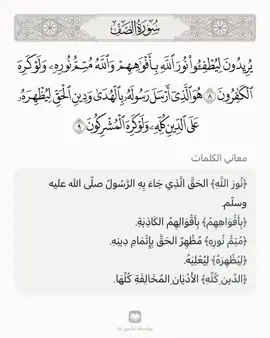 سُورَةُ الصَّفِّ
يُرِيدُونَ لِيُطْفِـُٔوا۟ نُورَ ٱللَّهِ بِأَفْوَٰهِهِمْ وَٱللَّهُ مُتِمُّ نُورِهِۦ وَلَوْ كَرِهَ
ٱلْكَٰفِرُونَ ٨ هُوَ ٱلَّذِىٓ أَرْسَلَ رَسُولَهُۥ بِٱلْهُدَىٰ وَدِينِ ٱلْحَقِّ لِيُظْهِرَهُۥ
عَلَى ٱلدِّينِ كُلِّهِۦ وَلَوْ كَرِهَ ٱلْمُشْرِكُونَ ٩
معاني الكلمات
﴿نُورَ اللَّهِ﴾ الحَقَّ الَّذِي جَاءَ بِهِ الرَّسُولُ صلّى الله عليه
وسلّم.
﴿بِأَفْوَاهِهِمْ﴾ بِأَقْوَالِهِمُ الكَاذِبَةِ.
﴿مُتِمُّ نُورِهِ﴾ مُظْهِرُ الحَقِّ بِإِتْمَامِ دِينِهِ.
﴿لِيُظْهِرَهُ﴾ لِيُعْلِيَهُ.
﴿الدِّينِ كُلِّهِ﴾ الأَدْيَانِ المُخَالِفَةِ كُلِّهَا.
بواسطة تطبيق آية